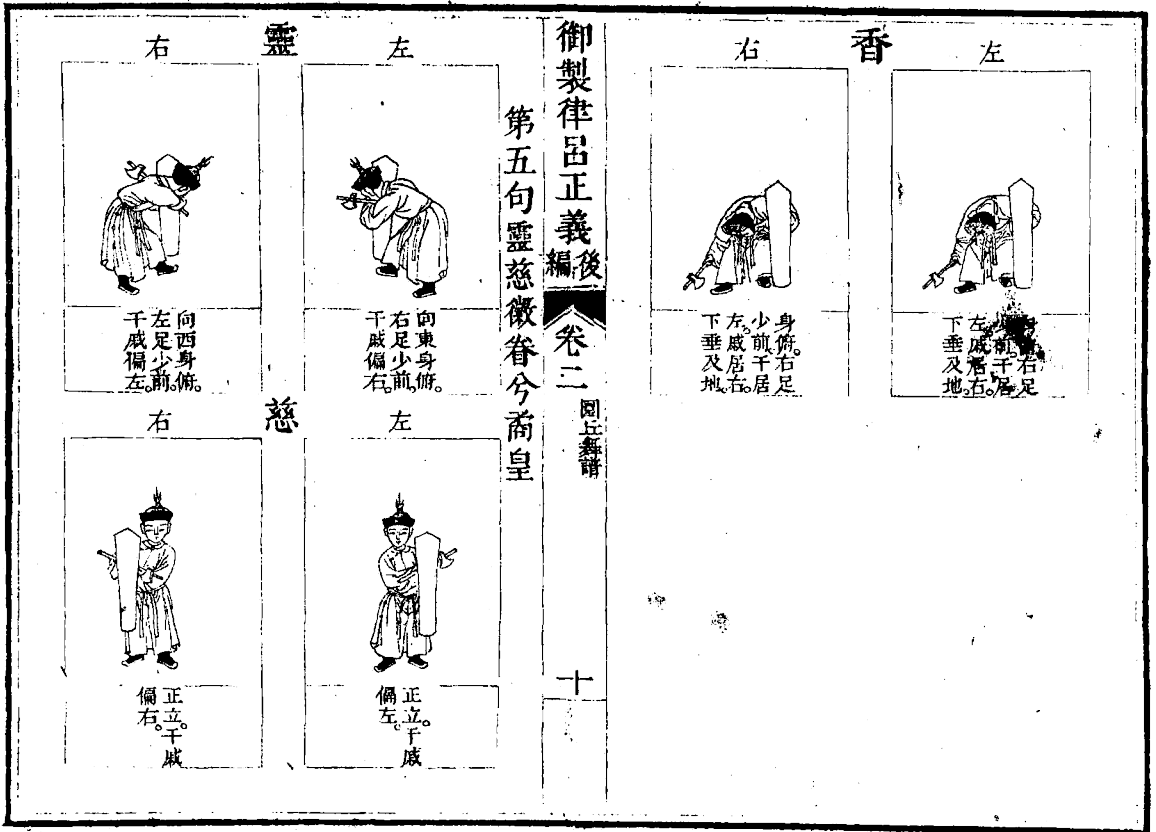 香
左
右足
前。干居
左。戚居右。
下垂及地。
右
身俯。右足
少前。干居
左。戚居右。
下垂及地。
御製律呂正義後編
卷二
圜丘舞譜
十
第五句靈慈徵眷兮矞皇
靈
左
向東身俯。
右足少前。
干戚偏右。
右
向西身俯。
左足少前。
干戚偏左。
慈
左
正立。干戚
偏左。
右
正立。干戚
偏右。